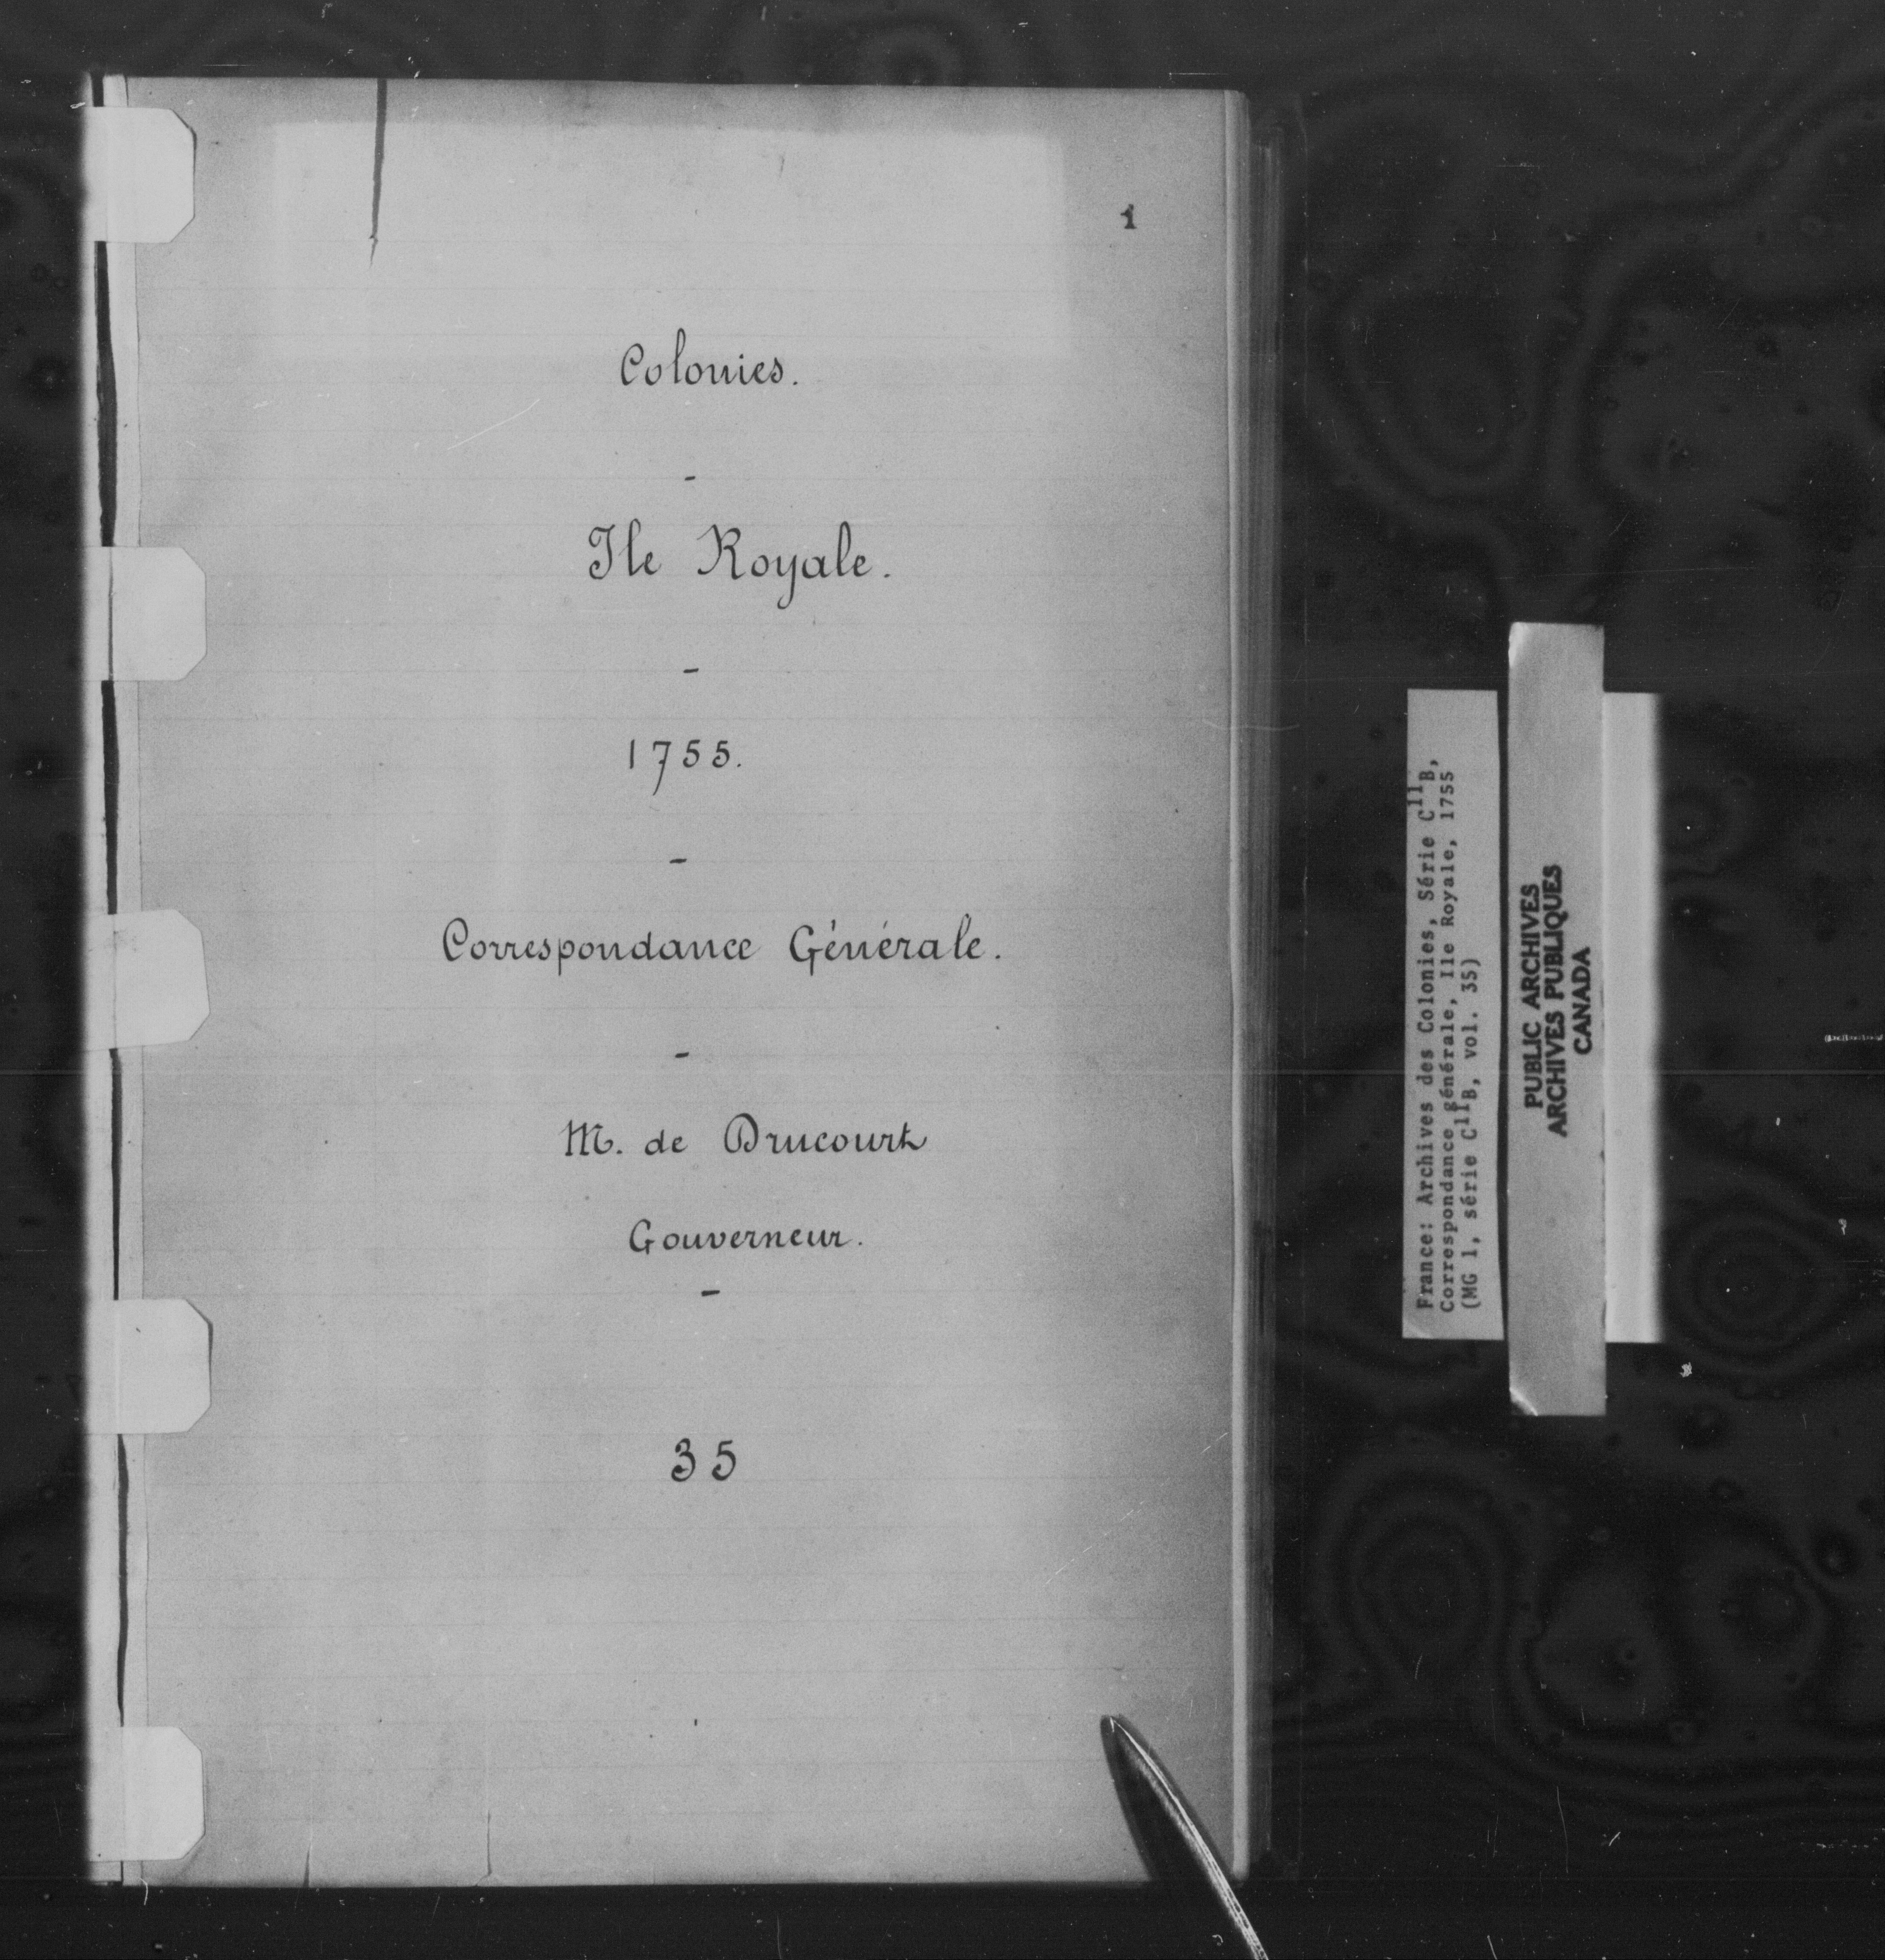 1
Colonies.
-
Ile Royale.
-
1755.
-
Correspondance Générale.
-
M. de Drucourt
Gouverneur.
-
35
France: Archives des Colonies, Série C11B,
Correspondance générale, Ile Royale, 1755
(MG 1, série C11B, vol. 35)
PUBLIC ARCHIVES
ARCHIVES PUBLIQUES
CANADA